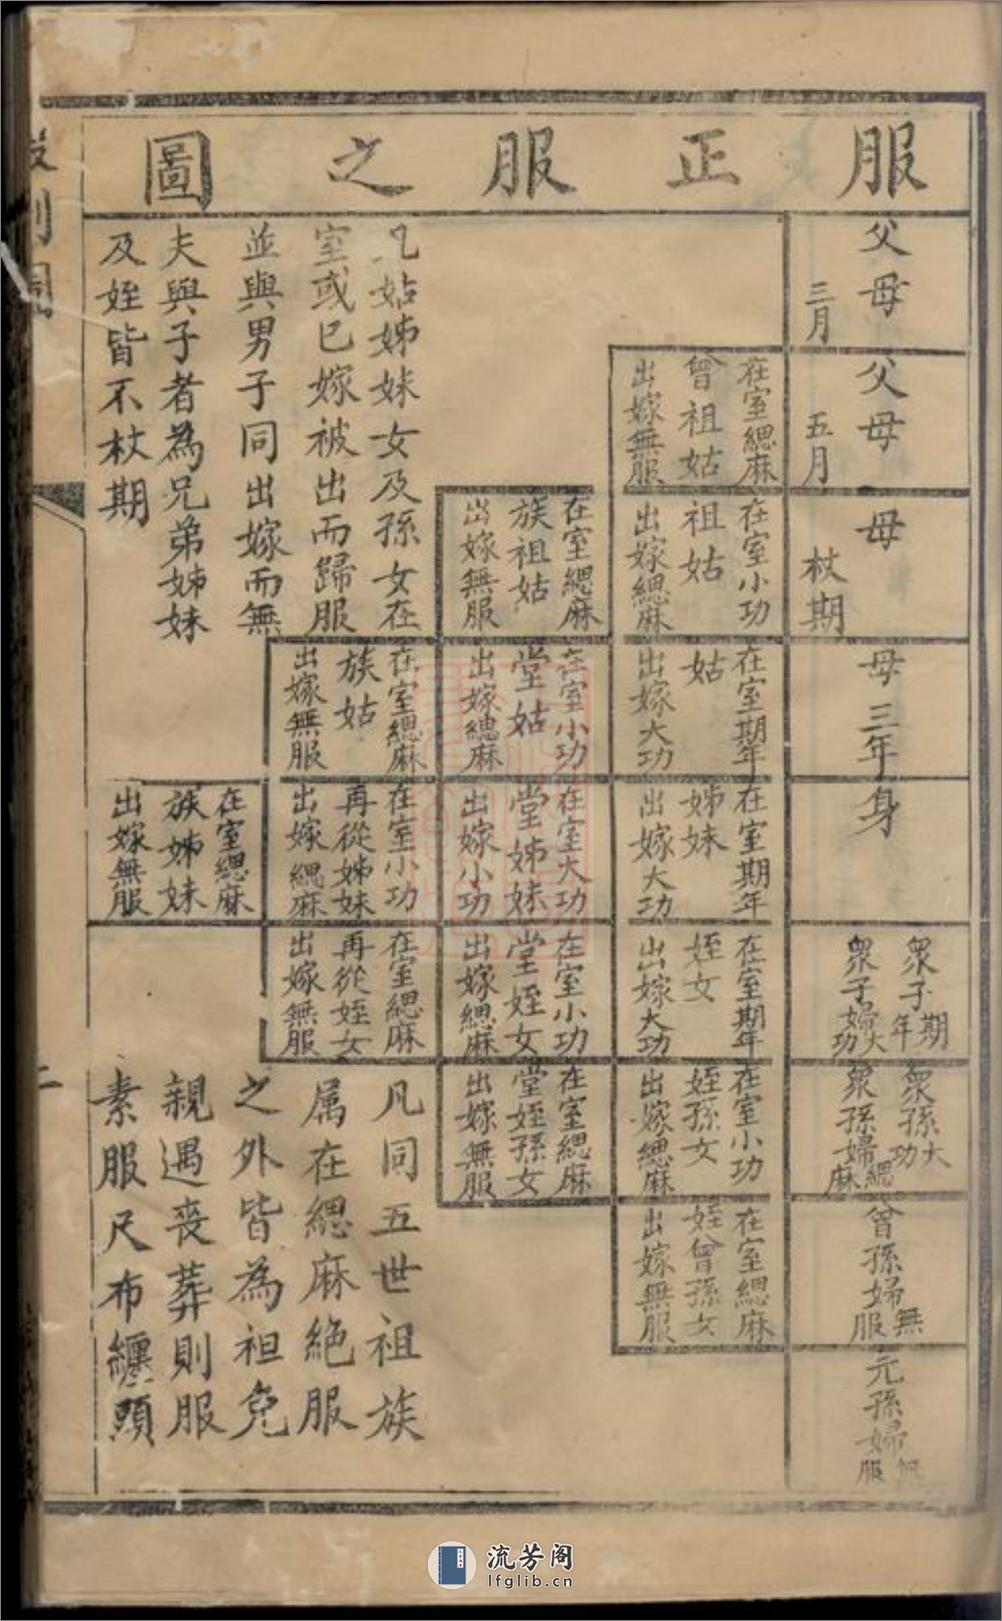 服正服之圖
父母
三月
父母
五月
母
杖期
母三年
身
眾子期年
眾子婦大功
眾孫大功
眾孫婦緦麻
曾孫婦無服
元孫婦無服
在室緦麻
曾祖姑
出嫁無服
在室小功
祖姑
出嫁緦麻
在室期年
姑
出嫁大功
在室期年
姊妹
出嫁大功
在室期年
姪女
出嫁大功
在室小功
姪孫女
出嫁緦麻
在室緦麻
姪曾孫女
出嫁無服
在室緦麻
族祖姑
出嫁無服
在室小功
堂姑
出嫁緦麻
在室大功
堂姊妹
出嫁小功
在室小功
堂姪女
出嫁緦麻
在室緦麻
堂姪孫女
出嫁無服
在室緦麻
族姑
出嫁無服
在室小功
再從姊妹
出嫁緦麻
在室緦麻
再從姪女
出嫁無服
在室緦麻
族姊妹
出嫁無服
凡姑姊妹女及孫女在
室或已嫁被出而歸服
並與男子同出嫁而無
夫與子者為兄弟姊妹
及姪皆不杖期
凡同五世祖族
属在緦麻絶服
之外皆為袒免
親遇喪葬則服
素服尺布纏頭
二
流芳阁
lfglib.cn